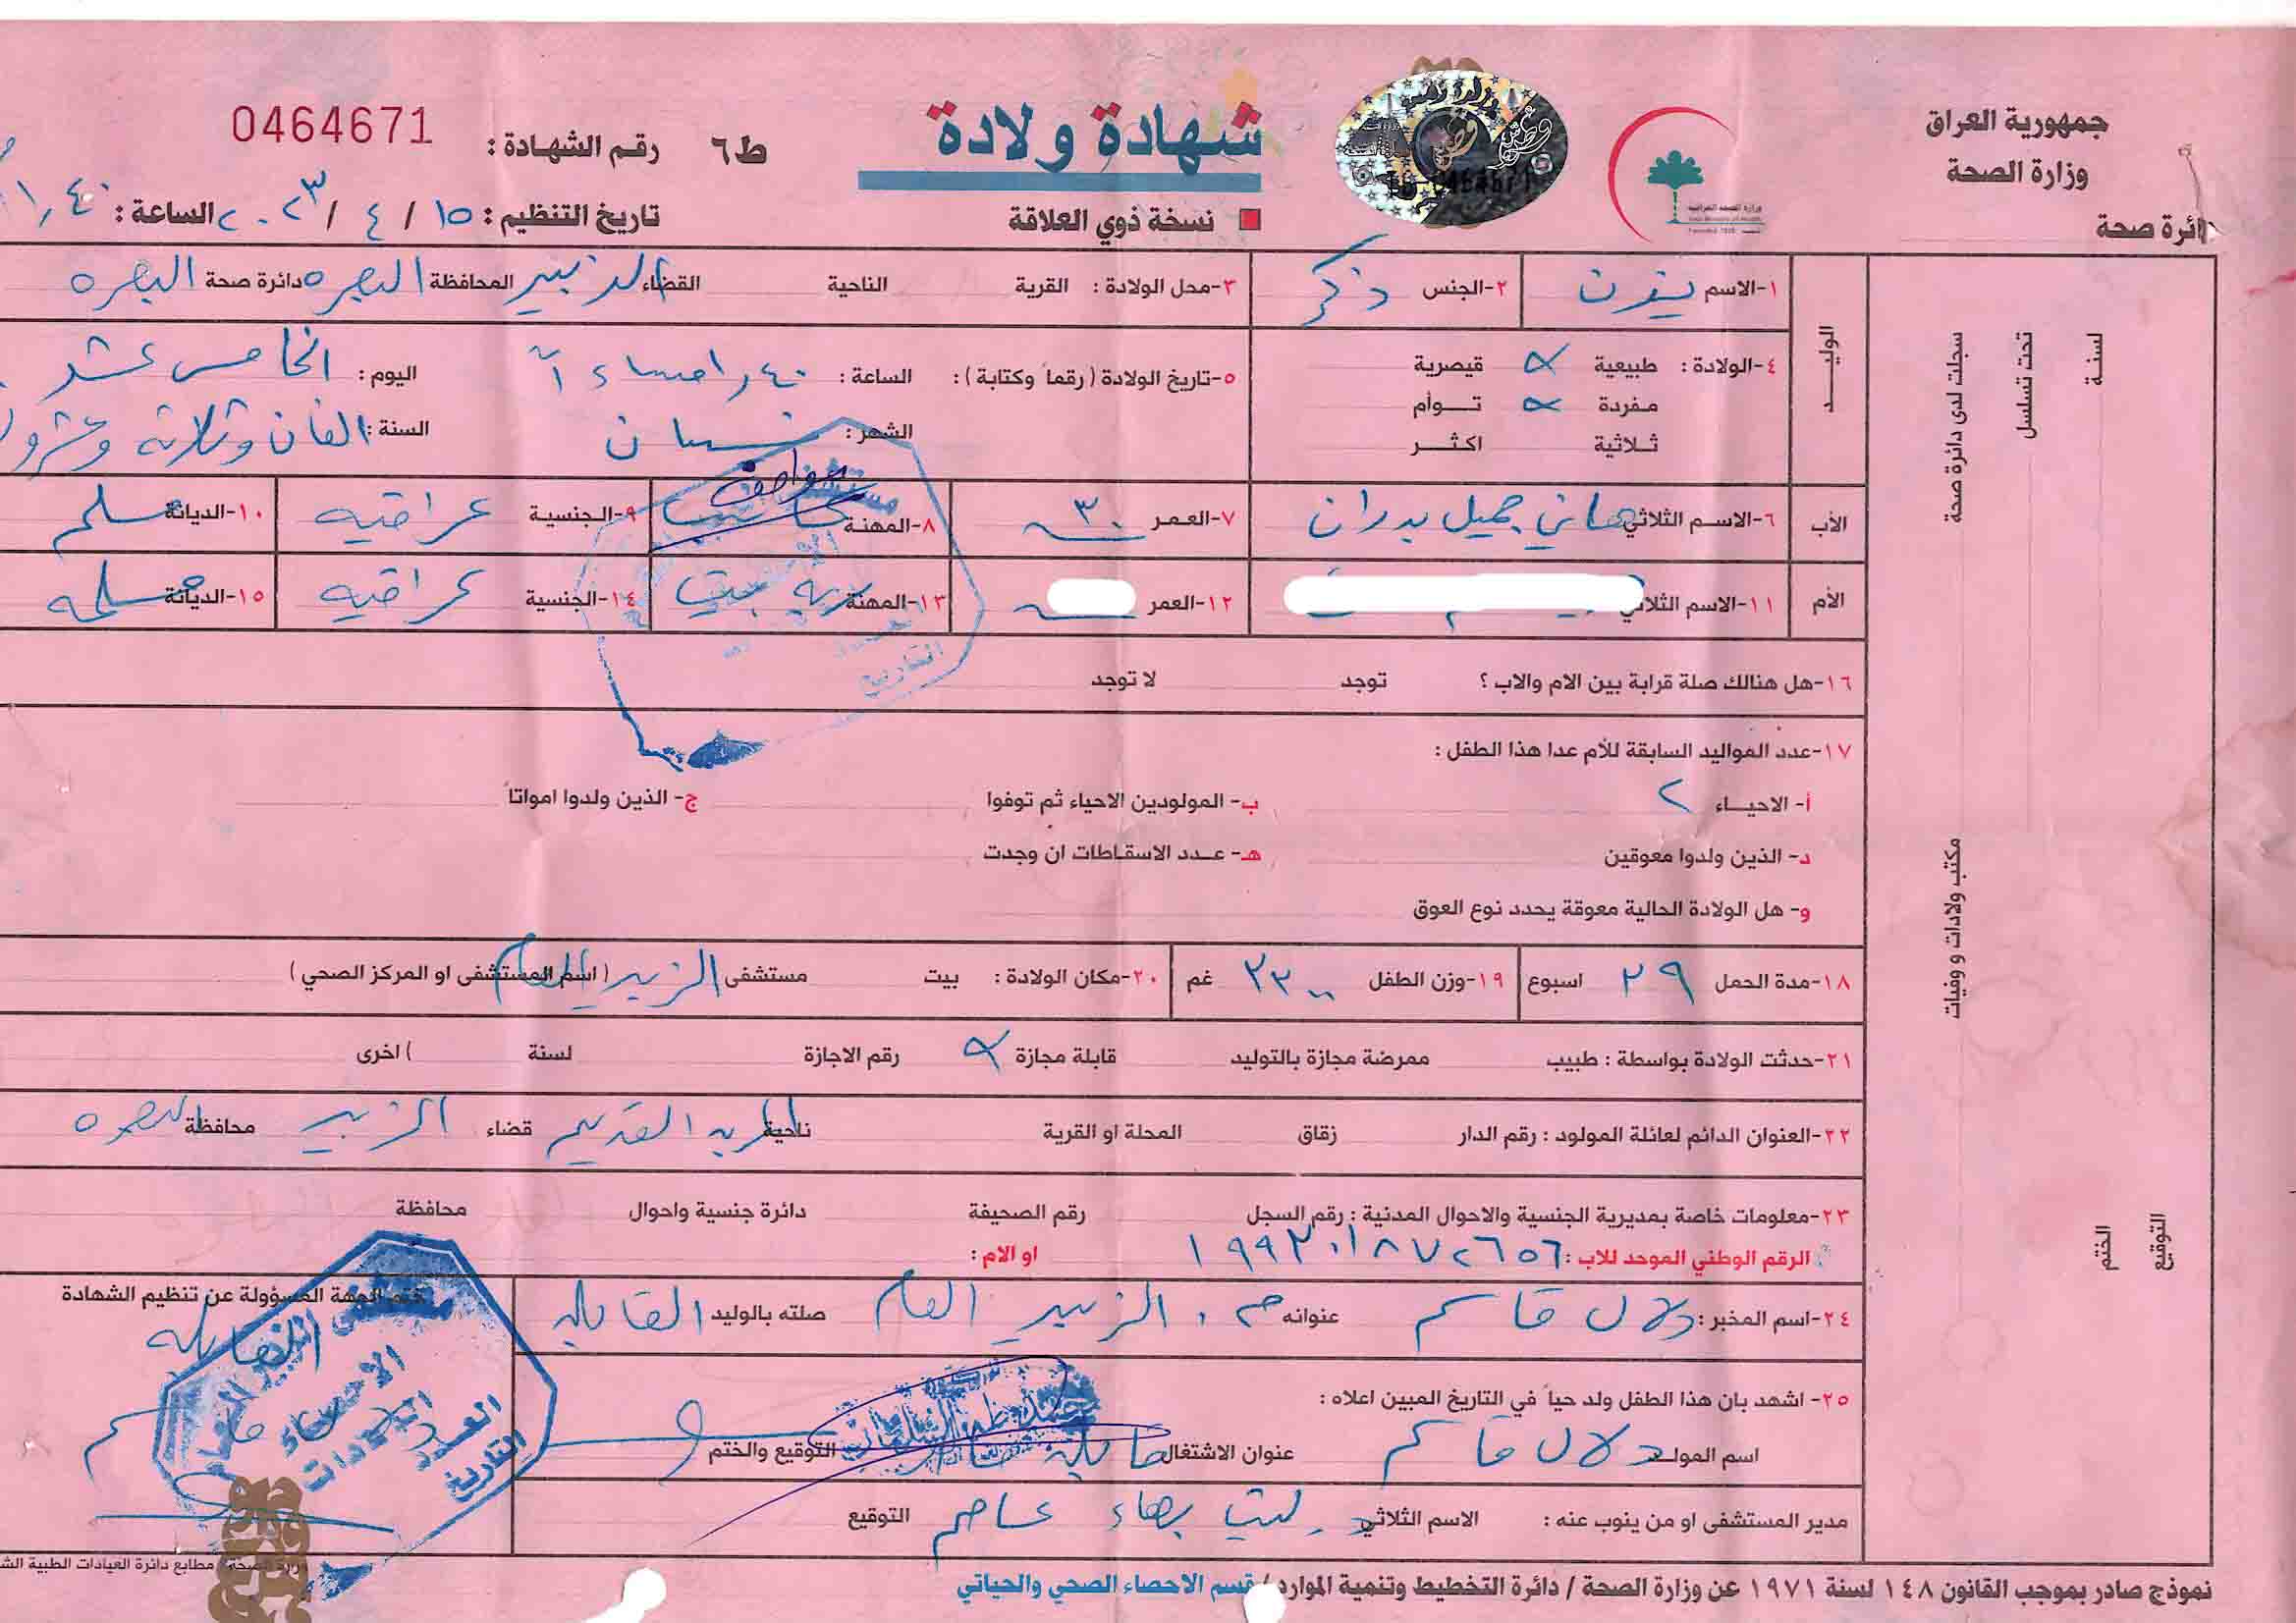 جمهورية العراق
وزارة الصحة
دائرة صحة
شهادة ولادة
نسخة ذوي العلاقة
ط٦ رقم الشهادة : 0464671
تاريخ التنظيم : ١٥ / ٤ / ٢٠٢٣ الساعة : ١,٤٠
سجلت لدى دائرة صحة
تحت تسلسل
لسنة
مكتب ولادات و وفيات
الختم
التوقيع
الوليد
١-الاسم ٢-الجنس ذكر ٣-محل الولادة : القرية الناحية القضاء الزبير المحافظة البصره دائرة صحة البصره
٤-الولادة : طبيعية قيصرية
مفردة توأم
ثلاثية اكثر
٥-تاريخ الولادة (رقماً وكتابة) : الساعة : ١,٤٠ مساءاً اليوم : الخامس عشر
الشهر : نيسان السنة : الفان وثلاثة وعشرون
الأب ٦-الاسم الثلاثي هاني جميل بدران ٧-العمر ٣٠ ٨-المهنة ٩-الجنسية عراقيه ١٠-الديانة مسلم
الأم ١١-الاسم الثلاثي ١٢-العمر ١٣-المهنة ربه بيت ١٤-الجنسية عراقيه ١٥-الديانة مسلمه
١٦-هل هنالك صلة قرابة بين الام والاب ؟ توجد لا توجد
١٧-عدد المواليد السابقة للأم عدا هذا الطفل :
أ- الاحياء ٢ ب- المولودين الاحياء ثم توفوا ج- الذين ولدوا امواتاً
د- الذين ولدوا معوقين هـ- عدد الاسقاطات ان وجدت
و- هل الولادة الحالية معوقة يحدد نوع العوق
١٨-مدة الحمل ٣٩ اسبوع ١٩-وزن الطفل ٣٣٠٠ غم ٢٠-مكان الولادة : بيت مستشفى الزبير العام ( اسم المستشفى او المركز الصحي )
٢١-حدثت الولادة بواسطة : طبيب ممرضة مجازة بالتوليد قابلة مجازة رقم الاجازة لسنة ) اخرى
٢٢-العنوان الدائم لعائلة المولود : رقم الدار زقاق المحلة او القرية ناحية القديم قضاء الزبير محافظة البصره
٢٣-معلومات خاصة بمديرية الجنسية والاحوال المدنية : رقم السجل رقم الصحيفة دائرة جنسية واحوال محافظة
الرقم الوطني الموحد للاب : ١٩٩٣٠١٨٧٢٦٥٦ او الام :
٢٤-اسم المخبر : دلال قاسم عنوانه م . الزبير العام صلته بالوليد القابله
ختم الجهة المسؤولة عن تنظيم الشهادة
القابله
٢٥- اشهد بان هذا الطفل ولد حياً في التاريخ المبين اعلاه :
اسم المولد دلال قاسم عنوان الاشتغال التوقيع والختم
مدير المستشفى او من ينوب عنه : الاسم الثلاثي د. ليث بهاء عاصم التوقيع
نموذج صادر بموجب القانون ١٤٨ لسنة ١٩٧١ عن وزارة الصحة / دائرة التخطيط وتنمية الموارد / قسم الاحصاء الصحي والحياتي
وزارة الصحة / مطابع دائرة العيادات الطبية